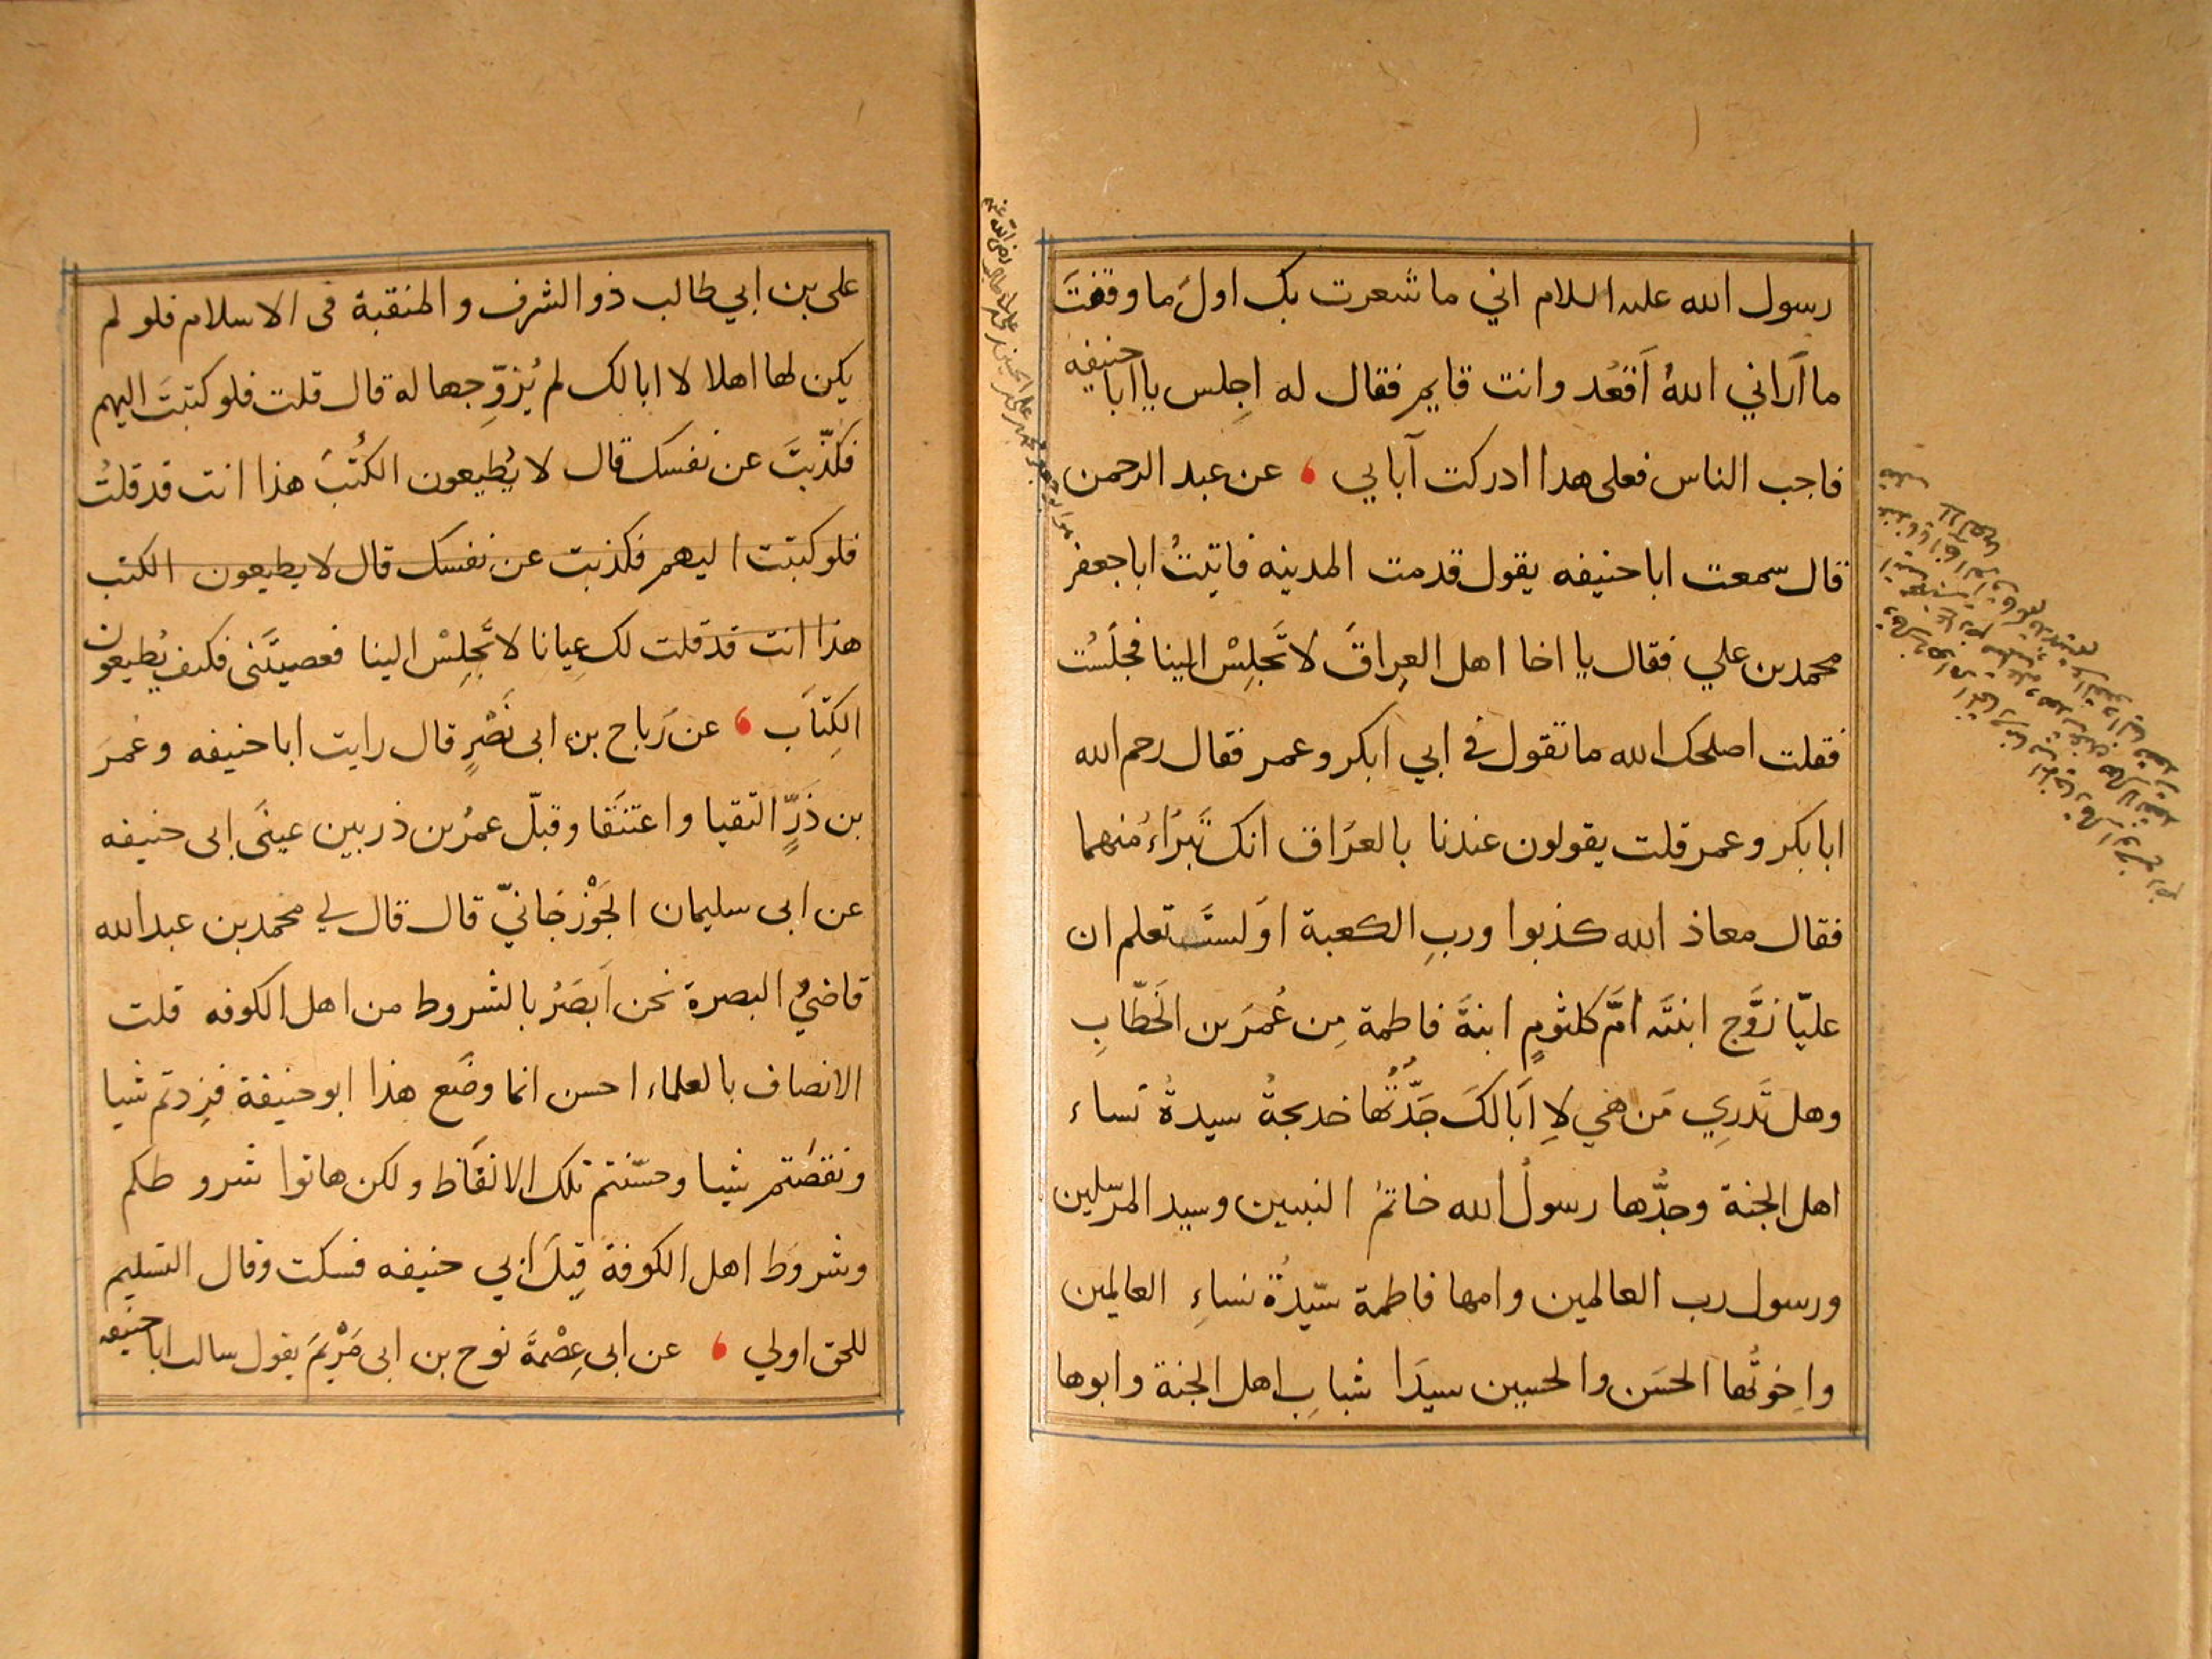 رسول الله عليه السلام اني ما شعرت بك اولَ ما وقفتَ
ما اَراني اللهُ اَقعُد وانت قايم فقال له اجِلس يا ابا حنيفه
فاجب الناس فعلى هدا ادركت آبايي ، عن عبد الرحمن
قال سمعت ابا حنيفه يقول قدمت المدينه فاتيتُ ابا جعفر
محمد بن علي فقال يا اخا اهل العِراقَ لا تَجلِسْ الينا فجلَستُ
فقلت اصلحك الله ما تقول في ابي ابكر وعمر فقال رحم الله
ابا بكر وعمر قلت يقولون عندنا بالعراق انك تَبرَاءُ منهما
فقال معاذ الله كذبوا وربِ الكعبة اَوَلستَ تعلم ان
عليّا زوَّج ابنتَه اُمَّ كلثومٍ ابنةَ فاطمة مِن عُمَرَ بن الخَطّابِ
وهل تَدرِي مَن هي لا اَبَالكَ جَدَّتُها خديجةُ سيدةُ نساء
اهل الجنة وجدُّها رسولُ الله خاتمُ النبيين وسيد المرسلين
ورسول رب العالمين وامها فاطمة سيّدةُ نساءِ العالمين
واِخوتُها الحسَن والحسين سيدَا شبابِ اهل الجنة وابوها
على بن ابي طالب ذو الشرف والمنقبة فى الاسلام فلو لم
يكن لها اهلا لا ابا لك لم يُزوِّجها له قال قلت فلو كتبتَ اليهم
فكذّبتَ عن نفسك قال لا يُطيعون الكُتُبَ هذا انت قد قلتُ
فلو كتبت اليهم فكذبت عن نفسك قال لا يطيعون الكتب
هذا انت قد قلت لك عِيانا لا تَجلِسْ الينا فعصيتَنى فكيف يُطيعون
الكِتابَ ، عن رَباح بن ابى نَصْرٍ قال رايت ابا حنيفه وعُمرَ
بن ذَرٍّ التقيا واعتنَقا وقبّل عمرُ بن ذر بين عينَى ابى حنيفه
عن ابى سليمان الجَوْزجَانيّ قال قال لي محمد بن عبد الله
قاضيُ البصرة نحن اَبصَرُ بالشروط من اهل الكوفه قلت
الانصاف بالعلماء احسن انما وضَع هذا ابو حنيفة فزدتم شيا
ونقصتم شيا وحسّنتم تلك الالفاظ ولكن هاتوا شروطكم
وشروط اهل الكوفة قبلَ ابي حنيفه فسكت وقال التسليم
للحق اولي ، عن ابى عِصْمةَ نوح بن ابى مَرْيَمَ يقول سالت ابا حنيفه